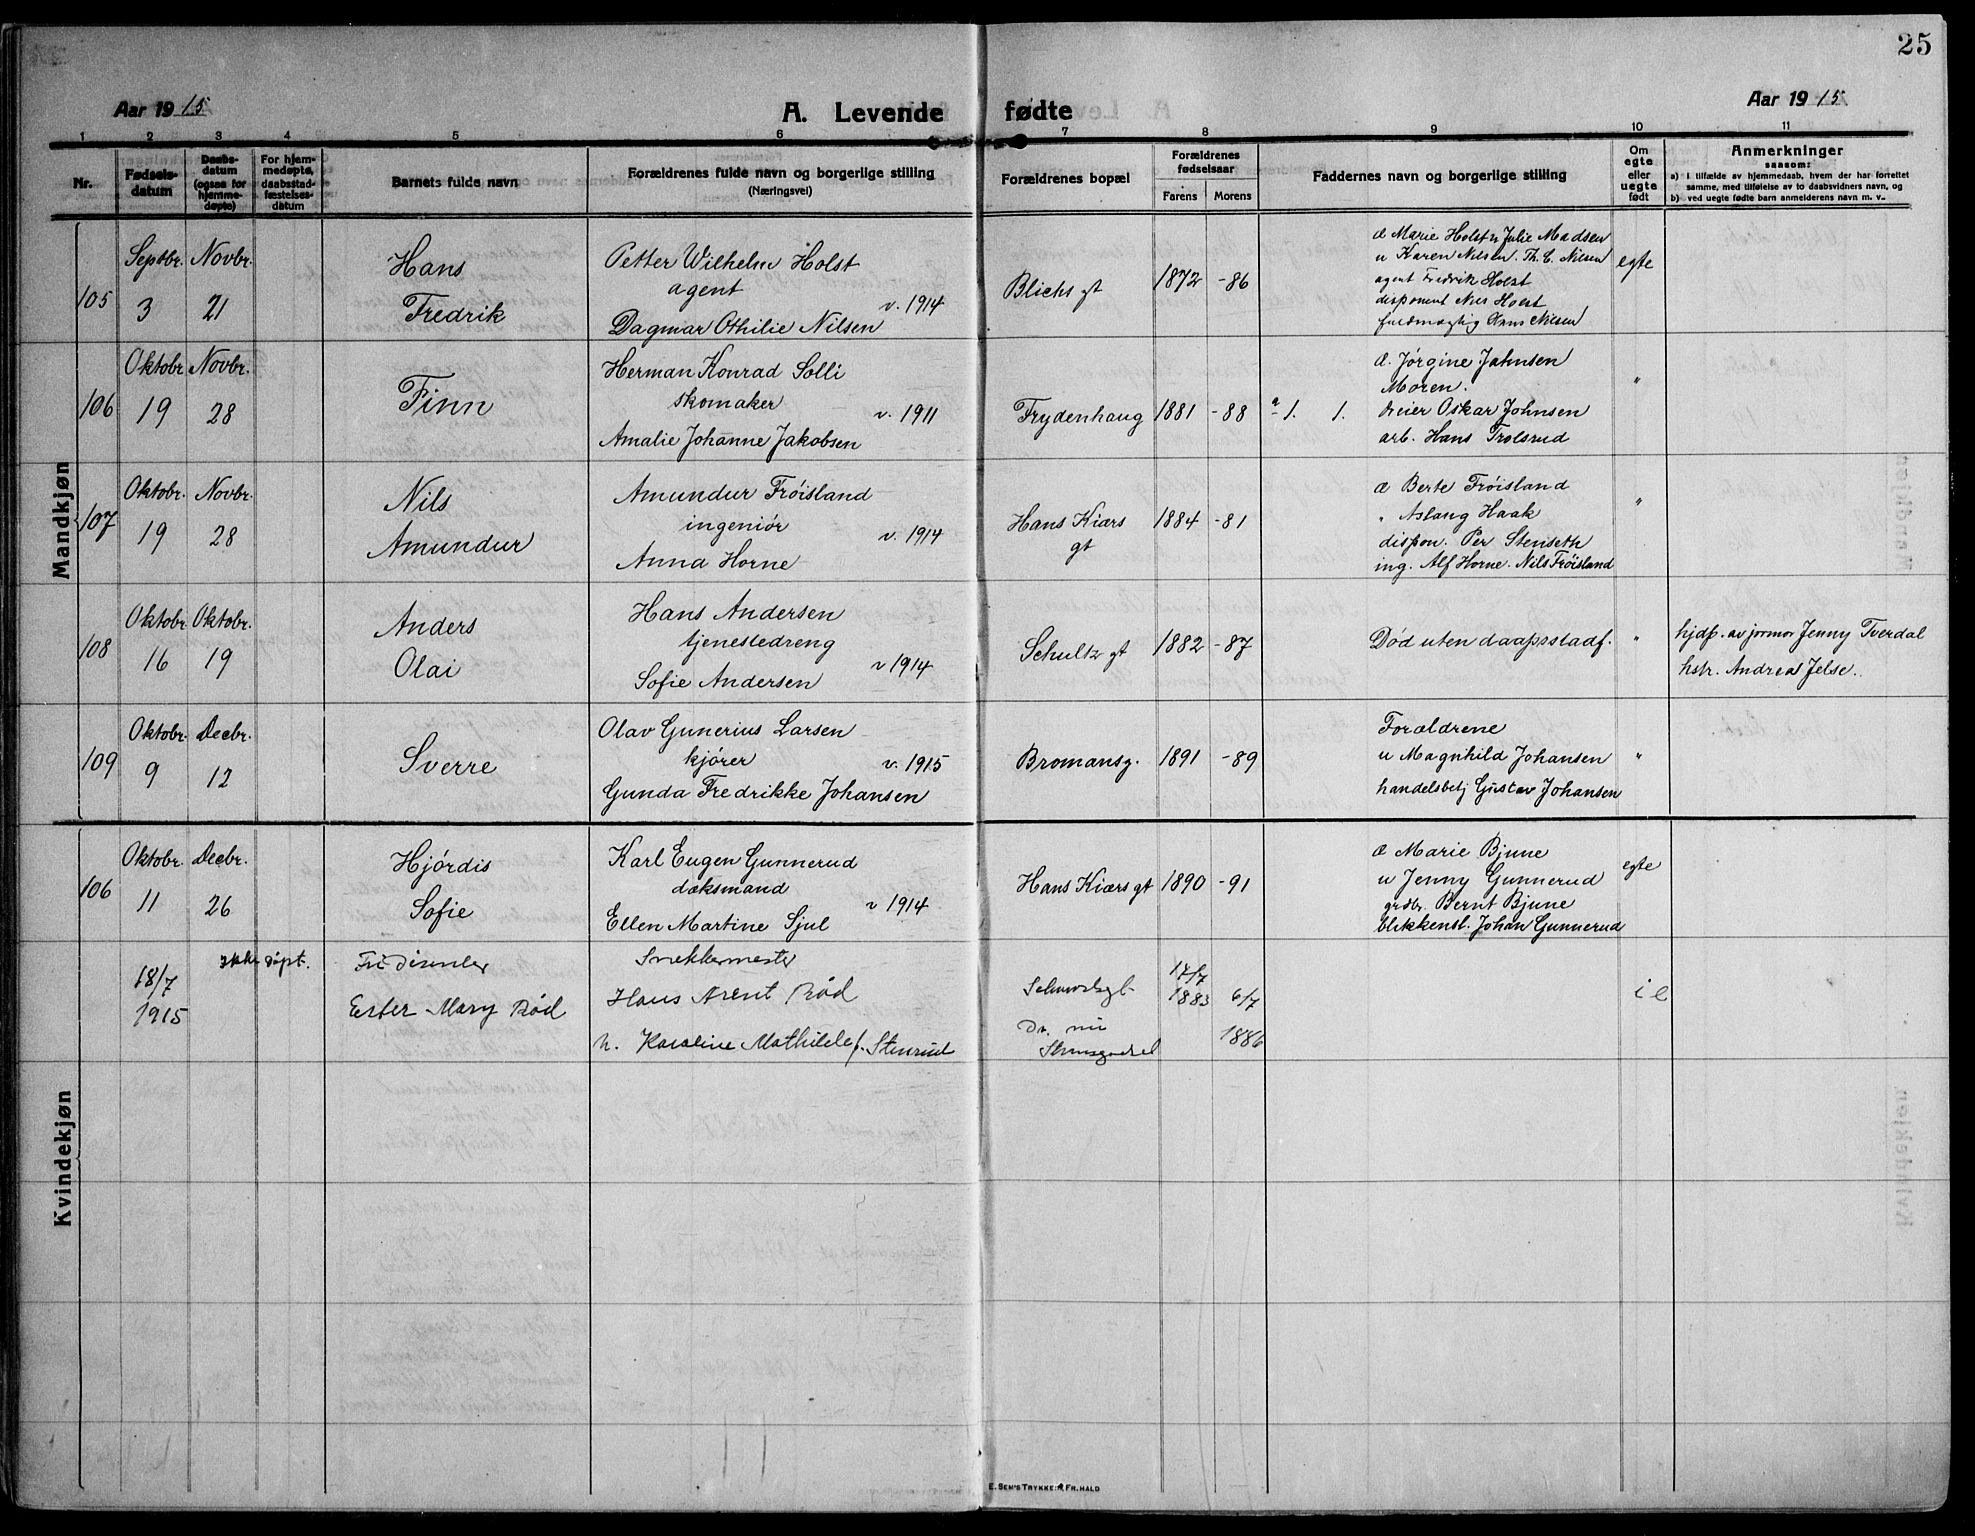 25
Aar 1915
A. Levende fødte
Aar 1915
1 2 3 4 5 6 7 8 9 10 11
Nr.
Fødsels-
datum
Daabs-
datum
(ogsaa for
hjemme-
døpte)
For hjem-
medøpte,
daabsstad-
fæstelses-
datum
Barnets fulde navn
Forældrenes fulde navn og borgerlige stilling
(Næringsvei)
Forældrenes bopæl
Forældrenes
fødselsaar
Farens Morens
Faddernes navn og borgerlige stilling
Om
egte
eller
uegte
født
Anmerkninger
saasom:
a) i tilfælde av hjemmedaab, hvem der har forrettet
samme, med tilføielse av to daabsvidners navn, og
b) ved uegte fødte barn anmelderens navn m. v.
Mandkjøn
105
Septbr.
3
Novbr.
21
Hans
Fredrik
Petter Wilhelm Holst
agent
v. 1914
Dagmar Othilie Nilsen
Blichs gt
1872 -86
Marie Holst Julie Madsen
u Karen Nilsen. Th. C. Nilsen
agent Fredrik Holst
disponent Holst
fuldmægtig Hans Nilsen
egte
106
Oktobr.
19
Novbr.
28
Finn
Herman Konrad Solli
skomaker
v. 1911
Amalie Johanne Jakobsen
Frydenhaug
1881 -88
1. 1.
Jørgine Jahnsen
Moren.
dreier Oskar Johnsen
arb. Hans Trolsrud
"
107
Oktobr.
19
Novbr.
28
Nils
Amundur
Amundur Frøisland
ingeniør
v. 1914
Anna Horne
Hans Kiærs
gt
1884 -81
Berte Frøisland
" Aslaug Haak
dispon. Per Stenseth
ing. Alf Horne. Nils Frøisland
"
108
Oktobr.
16
Oktobr.
19
Anders
Olai
Hans Andersen
tjenestedreng
v 1914
Sofie Andersen
Schultz gt
1882 -87
Død uten daapsstadf.
"
hjdp. av jormor Jenny Tverdal
hstr. Andrea Jelse.
109
Oktobr.
9
Decbr.
12
Sverre
Olav Gunerius Larsen
kjører
v. 1915
Gunda Fredrikke Johansen
Bromansg.
1891 -89
Forældrene
u Magnhild Johansen
handelsbetj Gustav Johansen
"
Kvindekjøn
106
Oktobr.
11
Decbr.
26
Hjørdis
Sofie
Karl Eugen Gunnerud
dæksmand
v 1914
Ellen Martine Sjul
Hans Kiærs gt
1890 -91
Marie Bjune
u Jenny Gunnerud
grdbr. Bernt Bjune
blikkensl. Johan Gunnerud
egte
18/7
1915
ikke døpt.
Ester Mary Rød
Snekkermester
Hans Arent Rød
h. Karoline Mathilde f. Stenrud
Dr. nu
17/7
1883
6/7
1886
E. Sem's Trykkeri, Fr.hald